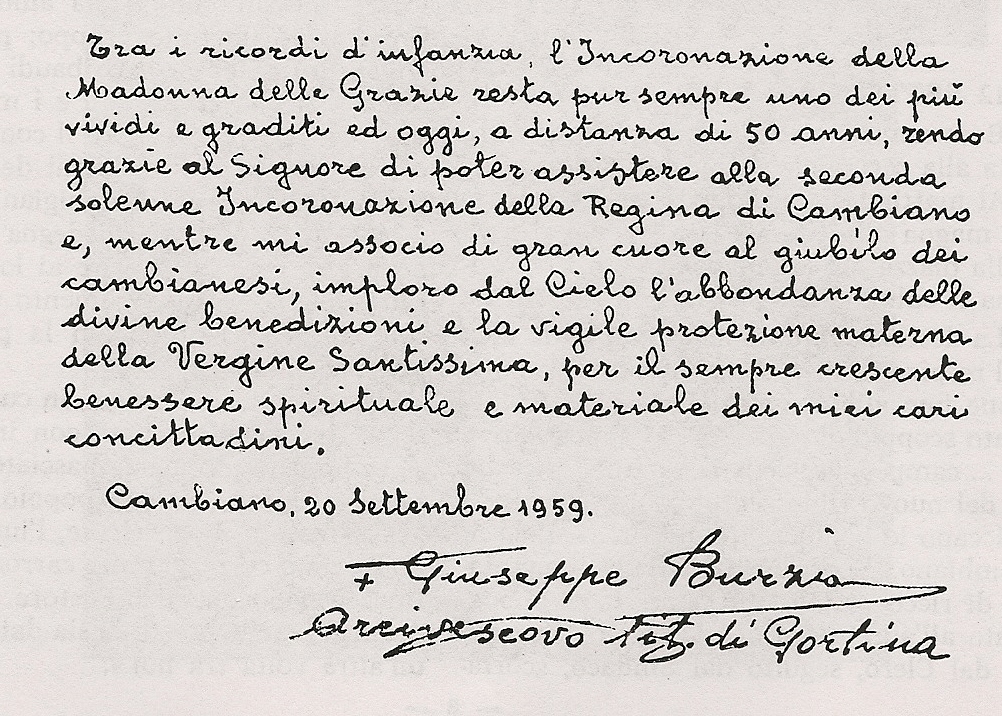 Tra i ricordi d'infanzia, l'Incoronazione della
Madonna delle Grazie resta pur sempre uno dei più
vividi e graditi ed oggi, a distanza di 50 anni, rendo
grazie al Signore di poter assistere alla seconda
solenne Incoronazione della Regina di Cambiano
e, mentre mi associo di gran cuore al giubilo dei
cambianesi, imploro dal Cielo l'abbondanza delle
divine benedizioni e la vigile protezione materna
della Vergine Santissima, per il sempre crescente
benessere spirituale e materiale dei miei cari
concittadini.
Cambiano, 20 Settembre 1959.
+ Giuseppe Burzio
Arcivescovo Tit. di Gortina